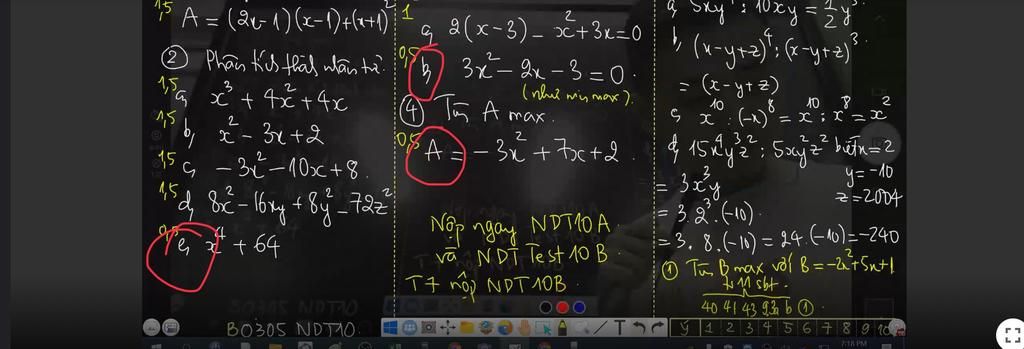 1,5
A = (2x-1)(x-1)+(x+1)²
② Phân tích thành nhân tử.
1,5
a, x³ + 4x² + 4x
1,5
b, x² - 3x + 2
1,5
c, -3x² - 10x + 8.
1,5
d, 8x² - 16xy + 8y² - 72z²
0,5
e, x⁴ + 64
B0305 NDT10
1
a, 2(x-3) - x² + 3x = 0
0,5
b, 3x² - 2x - 3 = 0.
(như min max).
④ Tìm A max.
0,5
A = -3x² + 7x + 2.
Nộp ngay NDT10A
và NDT Test 10B.
T7 nộp NDT10B.
a, 5xy⁴ : 10xy = ½y³
b, (x-y+z)⁴ : (x-y+z)³
= (x-y+z)
c, x¹⁰ : (-x)⁸ = x¹⁰ : x⁸ = x²
d, 15x⁴y³z² : 5xy²z² biết x = 2
y = -10
z = 2004
= 3x³y
= 3.2³.(-10).
= 3.8.(-10) = 24.(-10) = -240
① Tìm B max với B = -2x²+5x+1
11 sbt.
40 41 43 93a b ①.
y 1 2 3 4 5 6 7 8 9 10
7:18 PM